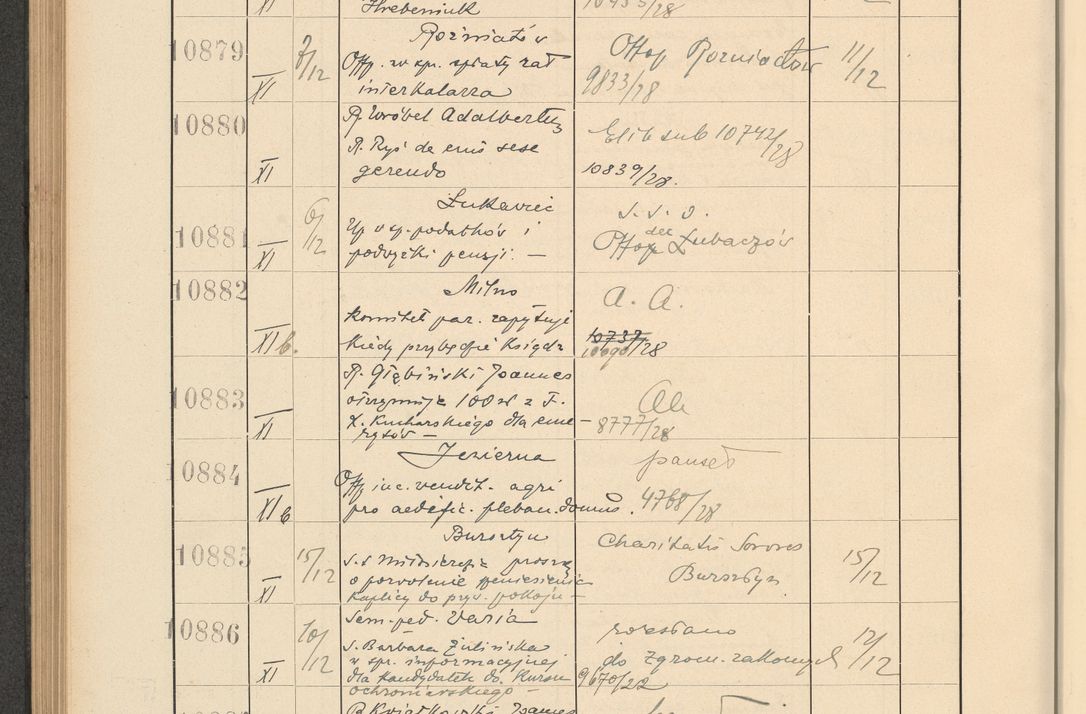 XI Hrebeniuk 10435/28
Rożniatów
10879 7/12 Offp. w sp. spłaty rat Offop Rozniatów 11/12
XI interkalarza 9833/28
10880 R. Wróbel Adalbertus Elib sub 10742/28
R. Ryś de eius sese
XI gerendo 10839/28.
Łukawiec s. s. o.
10881 6/12 Up w sp. podatków i dec
XI podwyżki pensji. — Offop Lubaczów
10882 Milno a. a.
Komitet par. zapytuje
XI b. kiedy przybędzie Ksiądz 10737
10690/28
R. Głębiński Joannes
10883 otrzymuje 100 zł z F. aa
X. Kucharskiego dla eme-
XI rytów — 8777/28
Jezierna
10884 pauset
Offp inc. vendit. agri
XI b pro aedific. pleban. domus. 4768/28
Bursztyn
10885 15/12 S.S Miłosierdzia proszą Charitatis Sorores 15/12
o pozwolenie przeniesienia Bursztyn
XI kaplicy do pryw. pokoju —
Sem. ped. Varia
10886 10/12 rozesłano
S. Barbara Żulińska
w spr. informacyjnej do Zgrom. zakonnych 12/12
XI dla kandydatek do Kursu 9670/22
ochroniarskiego —
R. Kwiatkowski Joannes